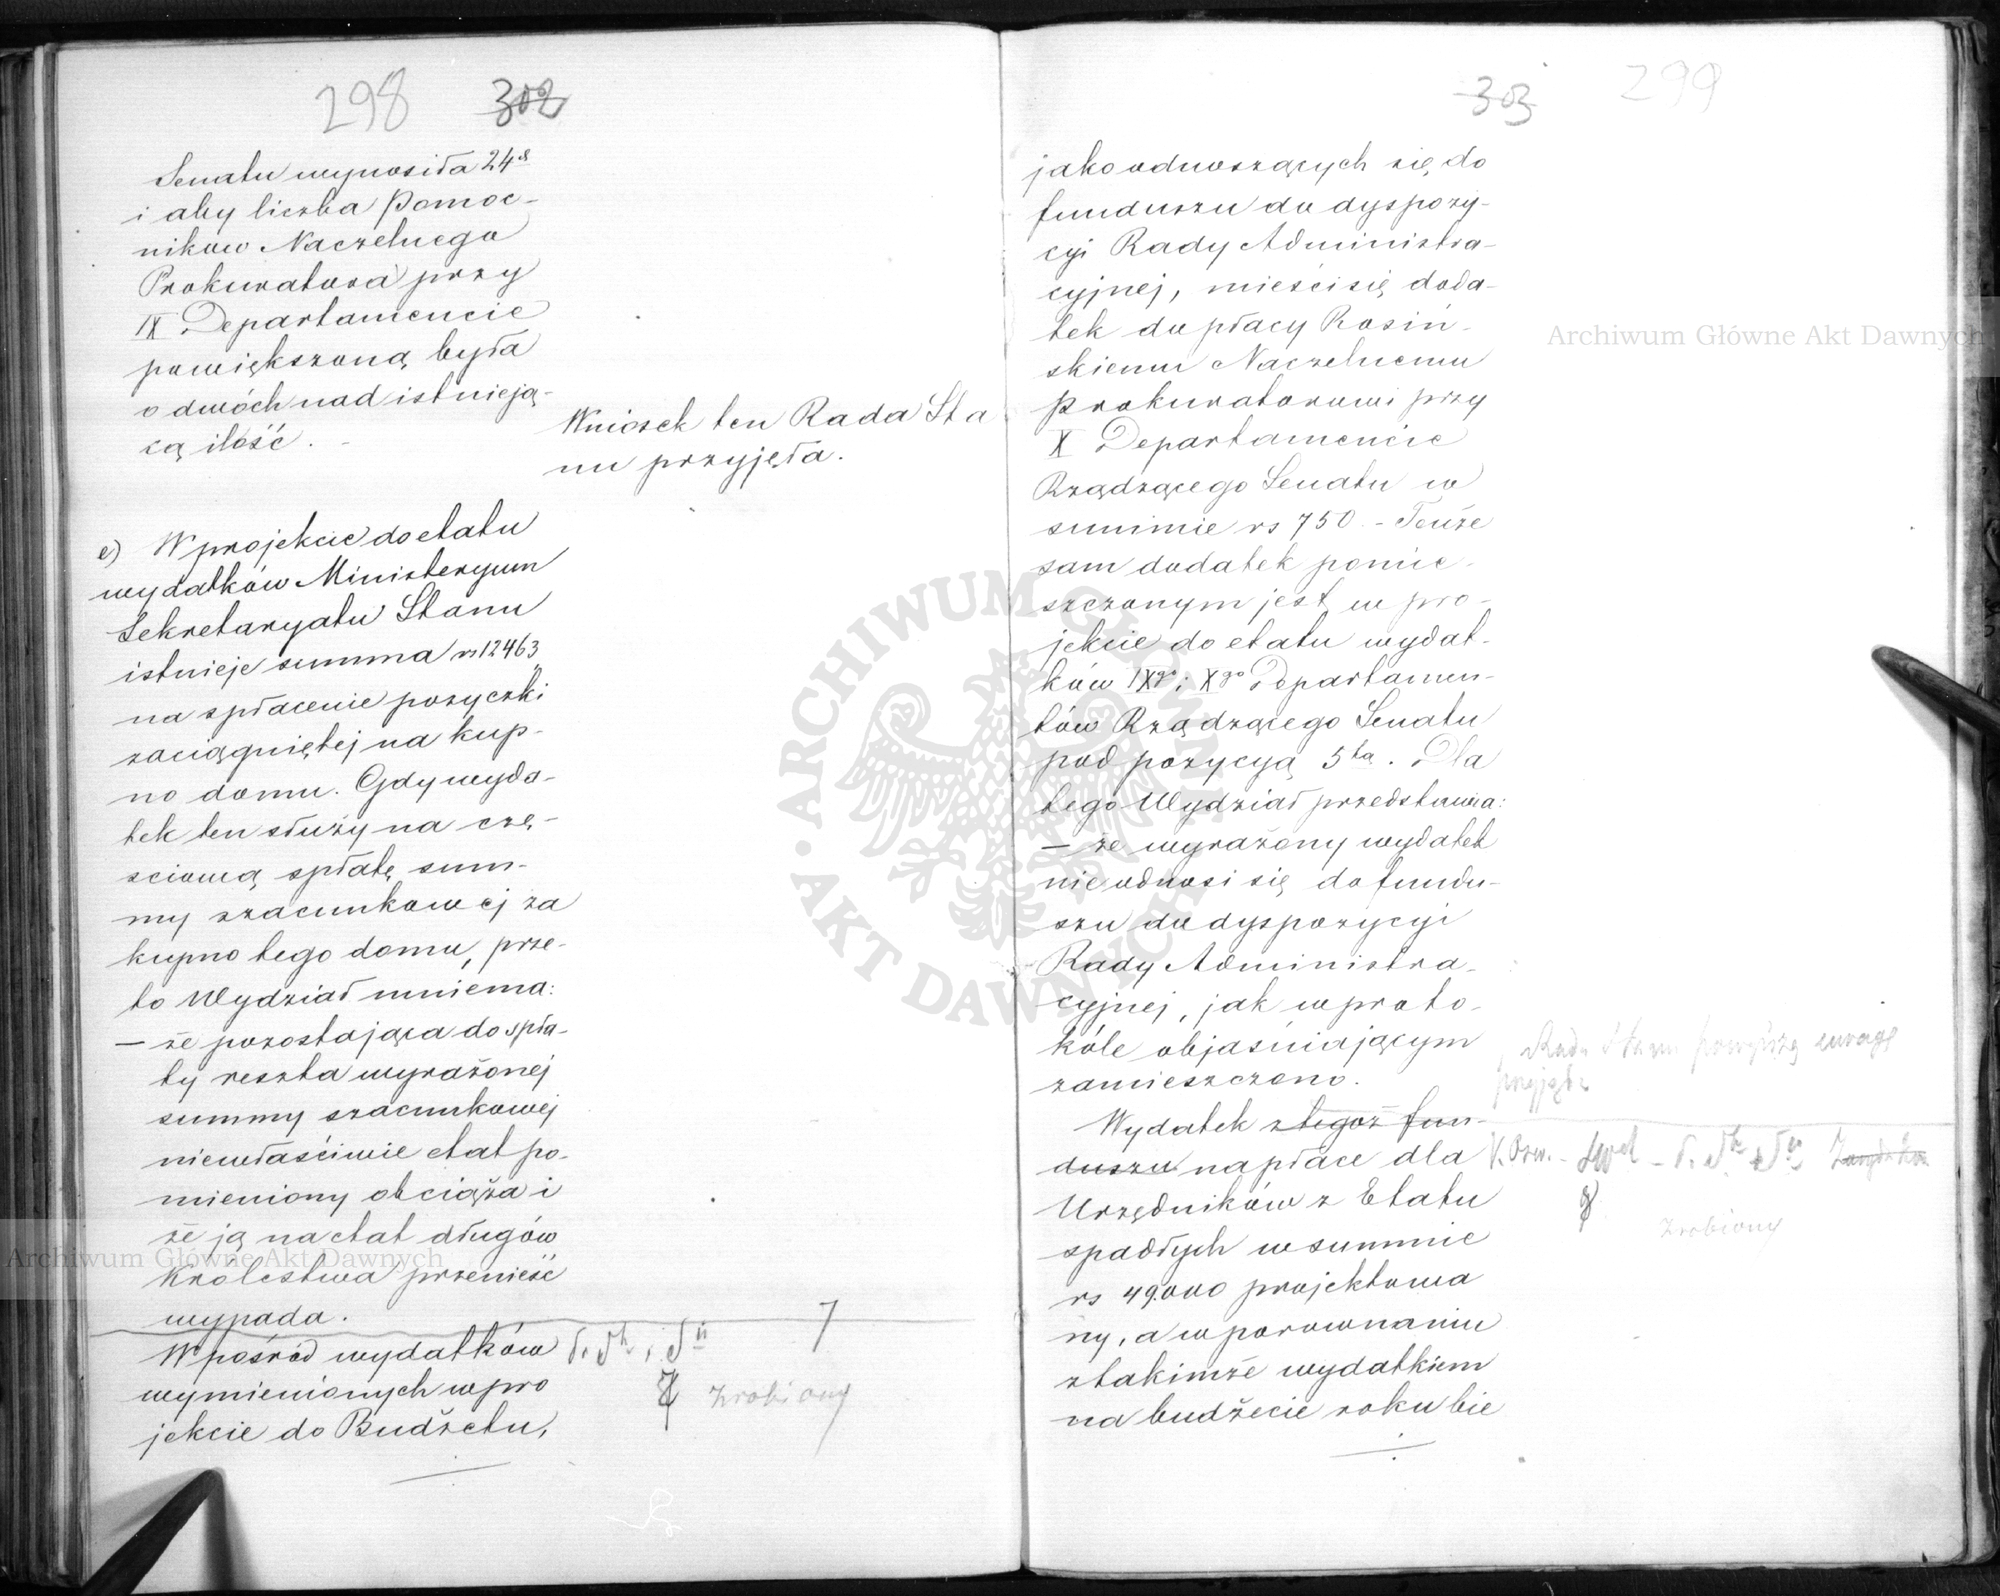 298 302
Senatu wynosiła 24
i aby liczba Pomoc-
ników Naczelnego
Prokuratora przy
IX Departamencie
powiększoną była
o dwóch nad istnieją-
cą ilość.
Wniosek ten Rada Sta
nu przyjęła.
e) W projekcie do etatu
wydatków Ministeryum
Sekretaryatu Stanu
istnieje summa rs 12463
na spłacenie pożyczki
zaciągniętej na kup-
no domu. Gdy wyda-
tek ten służy na czę-
sciową spłatę sum-
my szacunkowej za
kupno tego domu, prze-
to Wydział mniema:
— że pozostająca do spła-
ty reszta wyrażonej
summy szacunkowej
niewłaściwie etat po-
mieniony obciąża i
że ją na etat długów
Królestwa przenieść
wypada.
W pośród wydatków
wymienionych w pro
jekcie do Budżetu,
zrobiony
303 299
jako odnoszących się do
funduszu do dyspozy-
cyi Rady Administra-
cyjnej, mieści się doda-
tek do płacy Rosiń-
skiemu Naczelnemu
Prokuratorowi przy
X Departamencie
Rządzącego Senatu w
summie rs 750. - Tenże
sam dodatek pomie-
szczonym jest w pro-
jekcie do etatu wydat-
ków IXgo i Xgo Departamen-
tów Rządzącego Senatu
pod pozycyą 5tą. Dla
tego Wydział przedstawia:
— że wyrażony wydatek
nie odnosi się do fundu-
szu do dyspozycyi
Rady Administra-
cyjnej, jak w proto-
kóle objaśniającym
zamieszczono.
Rada Stanu powyższą uwagę
przyjęła
Wydatek z tegoż fun-
duszu na płace dla
Urzędników z Etatu
spadłych w summie
rs 49.000 projektowa
ny, a w porównaniu
z takimże wydatkiem
na budżecie roku bie
zrobiony
Archiwum Główne Akt Dawnych
Archiwum Główne Akt Dawnych
ARCHIWUM GŁÓWNE AKT DAWNYCH